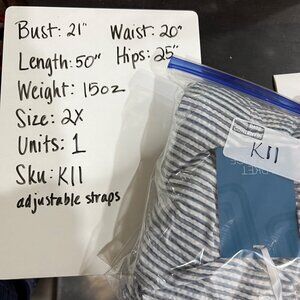 Bust: 21" Waist: 20"
Length: 50" Hips: 25"
Weight: 15oz
Size: 2X
Units: 1
Sku: K11
adjustable straps
K11